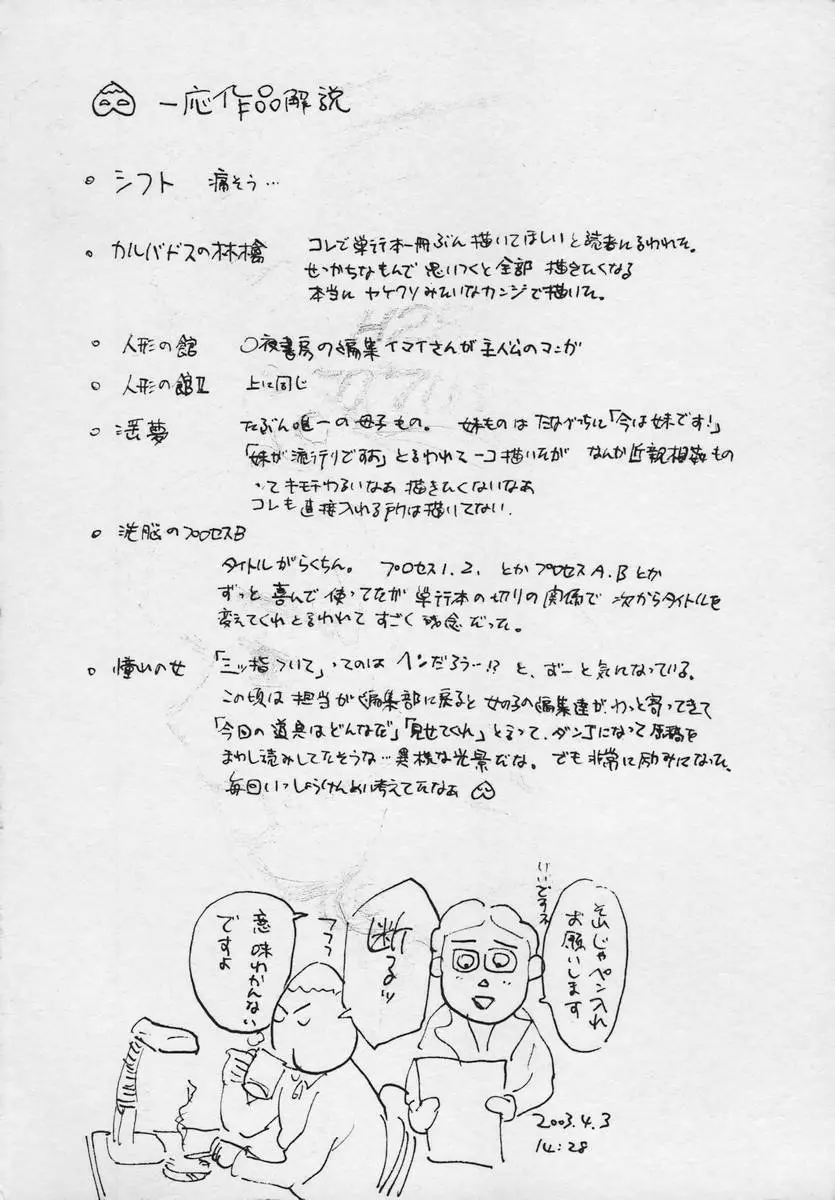 一応作品解説
○ シフト 痛そう…
○ カルバドスの林檎 コレで単行本一冊ぶん描いてほしいと読者に言われた。
せっかちなもんで思いつくと全部描きたくなる
本当にヤケクソみたいなカンジで描いた。
○ 人形の館 ○夜書房の編集イマイさんが主人公のマンガ
○ 人形の館Ⅱ 上に同じ
○ 淫夢 たぶん唯一の母子もの。 妹ものは たなべっちに「今は妹です!」
「妹が流行りですよ」と言われて一コ描いたが なんか近親相姦もの
ってキモチわるいなぁ 描きたくないなぁ
コレも直接入れる所は描いてない.
○ 洗脳のプロセスB
タイトルがらくちん。 プロセス1.2. とか プロセスA.Bとか
ずっと喜んで使ってたが単行本の切りの関係で次からタイトルを
変えてくれと言われてすごく残念だった。
○ 憧れの女 「三ッ指ついて」ってのはヘンだろうー!? と、ずーと気になっている。
この頃は担当が編集部に戻ると女の子の編集達が、わっと寄ってきて
「今回の道具はどんなだ」「見せてくれ」と言って、ダンゴになって原稿を
まわし読みしてたそうな…異様な光景だな。でも非常に励みになった。
毎回いっしょうけんめい考えてたなぁ
じゃペン入れ
お願いします
いいですね
断るッ
フフフ
意味わかんない
ですよ
2003.4.3
14:28